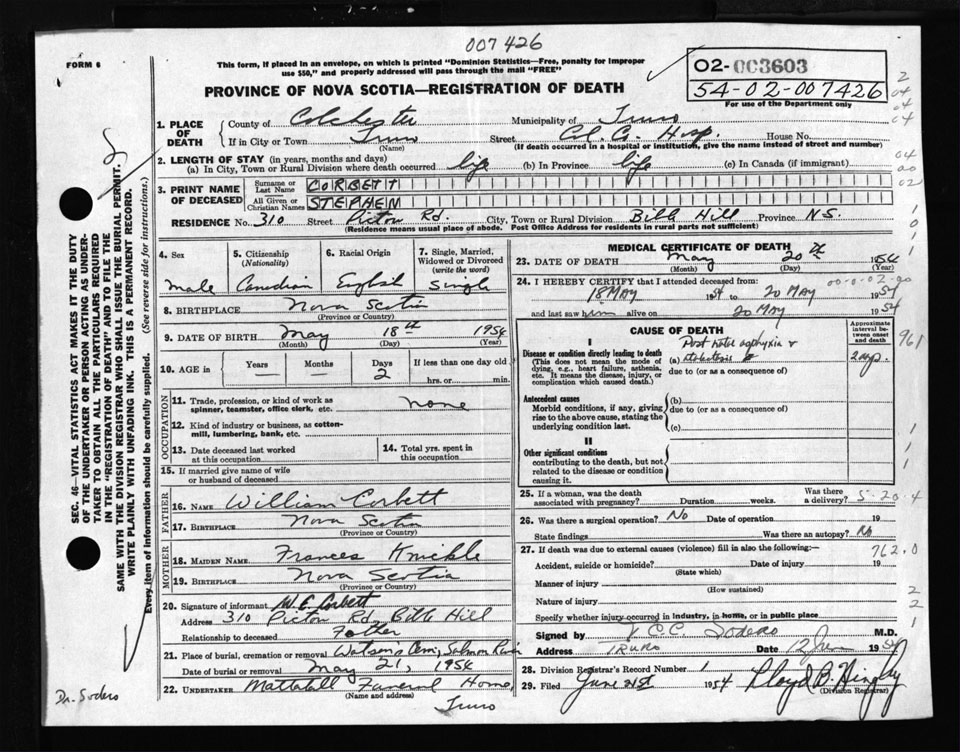 007426
FORM 6
This form, if placed in an envelope, on which is printed "Dominion Statistics—Free, penalty for improper
use $50," and properly addressed will pass through the mail "FREE"
02-003603
54-02-007426
For use of the Department only
PROVINCE OF NOVA SCOTIA—REGISTRATION OF DEATH
1. PLACE OF DEATH
County of Colchester Municipality of Truro
If in City or Town Truro Street Col. Co. Hosp. House No.
(Name) (If death occurred in a hospital or institution, give the name instead of street and number)
2. LENGTH OF STAY (in years, months and days)
(a) In City, Town or Rural Division where death occurred life (b) In Province life (c) In Canada (if immigrant)
3. PRINT NAME OF DECEASED
Surname or Last Name CORBETT
All Given or Christian Names STEPHEN
RESIDENCE No. 310 Street Picton Rd. City, Town or Rural Division Bible Hill Province N.S.
(Residence means usual place of abode. Post Office Address for residents in rural parts not sufficient)
4. Sex
male
5. Citizenship
(Nationality)
Canadian
6. Racial Origin
English
7. Single, Married,
Widowed or Divorced
(write the word)
Single
8. BIRTHPLACE Nova Scotia
(Province or Country)
9. DATE OF BIRTH May 18th 1954
(Month) (Day) (Year)
10. AGE in
Years —
Months —
Days 2
If less than one day old
hrs. or min.
OCCUPATION
11. Trade, profession, or kind of work as
spinner, teamster, office clerk, etc. none
12. Kind of industry or business, as cotton-
mill, lumbering, bank, etc.
13. Date deceased last worked
at this occupation
14. Total yrs. spent in
this occupation
15. If married give name of wife
or husband of deceased
FATHER
16. NAME William Corbett
17. BIRTHPLACE Nova Scotia
(Province or Country)
MOTHER
18. MAIDEN NAME Frances Knickle
19. BIRTHPLACE Nova Scotia
(Province or Country)
20. Signature of informant W. E. Corbett
Address 310 Picton Rd, Bible Hill
Relationship to deceased Father
21. Place of burial, cremation or removal Watsons Cem, Salmon River
Date of burial or removal May 21, 1954
22. UNDERTAKER Mattatall Funeral Home
(Name and address)
Truro
MEDICAL CERTIFICATE OF DEATH
23. DATE OF DEATH May 20th 1954
(Month) (Day) (Year)
24. I HEREBY CERTIFY that I attended deceased from:
18 May 1954 to 20 May 1954
and last saw him alive on 20 May 1954
CAUSE OF DEATH
Approximate
interval be-
tween onset
and death
I
Disease or condition directly leading to death
(This does not mean the mode of
dying, e.g., heart failure, asthenia,
etc. It means the disease, injury, or
complication which caused death.)
Post natal asphyxia &
(a) atelectasis
2 days.
due to (or as a consequence of)
Antecedent causes
Morbid conditions, if any, giving
rise to the above cause, stating the
underlying condition last.
(b)
due to (or as a consequence of)
(c)
II
Other significant conditions
contributing to the death, but not
related to the disease or condition
causing it.
25. If a woman, was the death
associated with pregnancy? Duration weeks. Was there
a delivery?
5-20-4
26. Was there a surgical operation? No Date of operation 19
State findings Was there an autopsy? No
27. If death was due to external causes (violence) fill in also the following:—
762.0
Accident, suicide or homicide? Date of injury 19
(State which)
Manner of injury
(How sustained)
Nature of injury
Specify whether injury occurred in industry, in home, or in public place
Signed by C.C. Sodero M.D.
Address TRURO Date 1954
28. Division Registrar's Record Number 1
29. Filed June 21st 1954 Lloyd B.
(Division Registrar)
961
SEC. 46—VITAL STATISTICS ACT MAKES IT THE DUTY
OF THE UNDERTAKER OR PERSON ACTING AS UNDER-
TAKER TO OBTAIN ALL THE PARTICULARS REQUIRED
IN THE "REGISTRATION OF DEATH" AND TO FILE THE
SAME WITH THE DIVISION REGISTRAR WHO SHALL ISSUE THE BURIAL PERMIT.
WRITE PLAINLY WITH UNFADING INK. THIS IS A PERMANENT RECORD.
Every item of information should be carefully supplied. (See reverse side for instructions.)
Dr. Sodero